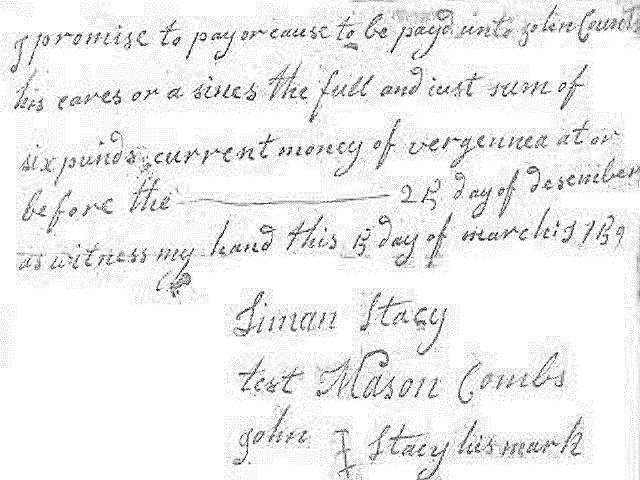 I promise to pay or cause to be payd unto John Count
his eares or a sines the full and iust sum of
six punds current money of vergennea at or
before the 25 day of desember
as witness my hand this 15 day of march
Siman Stacy
test Mason Combs
John I Stacy his mark